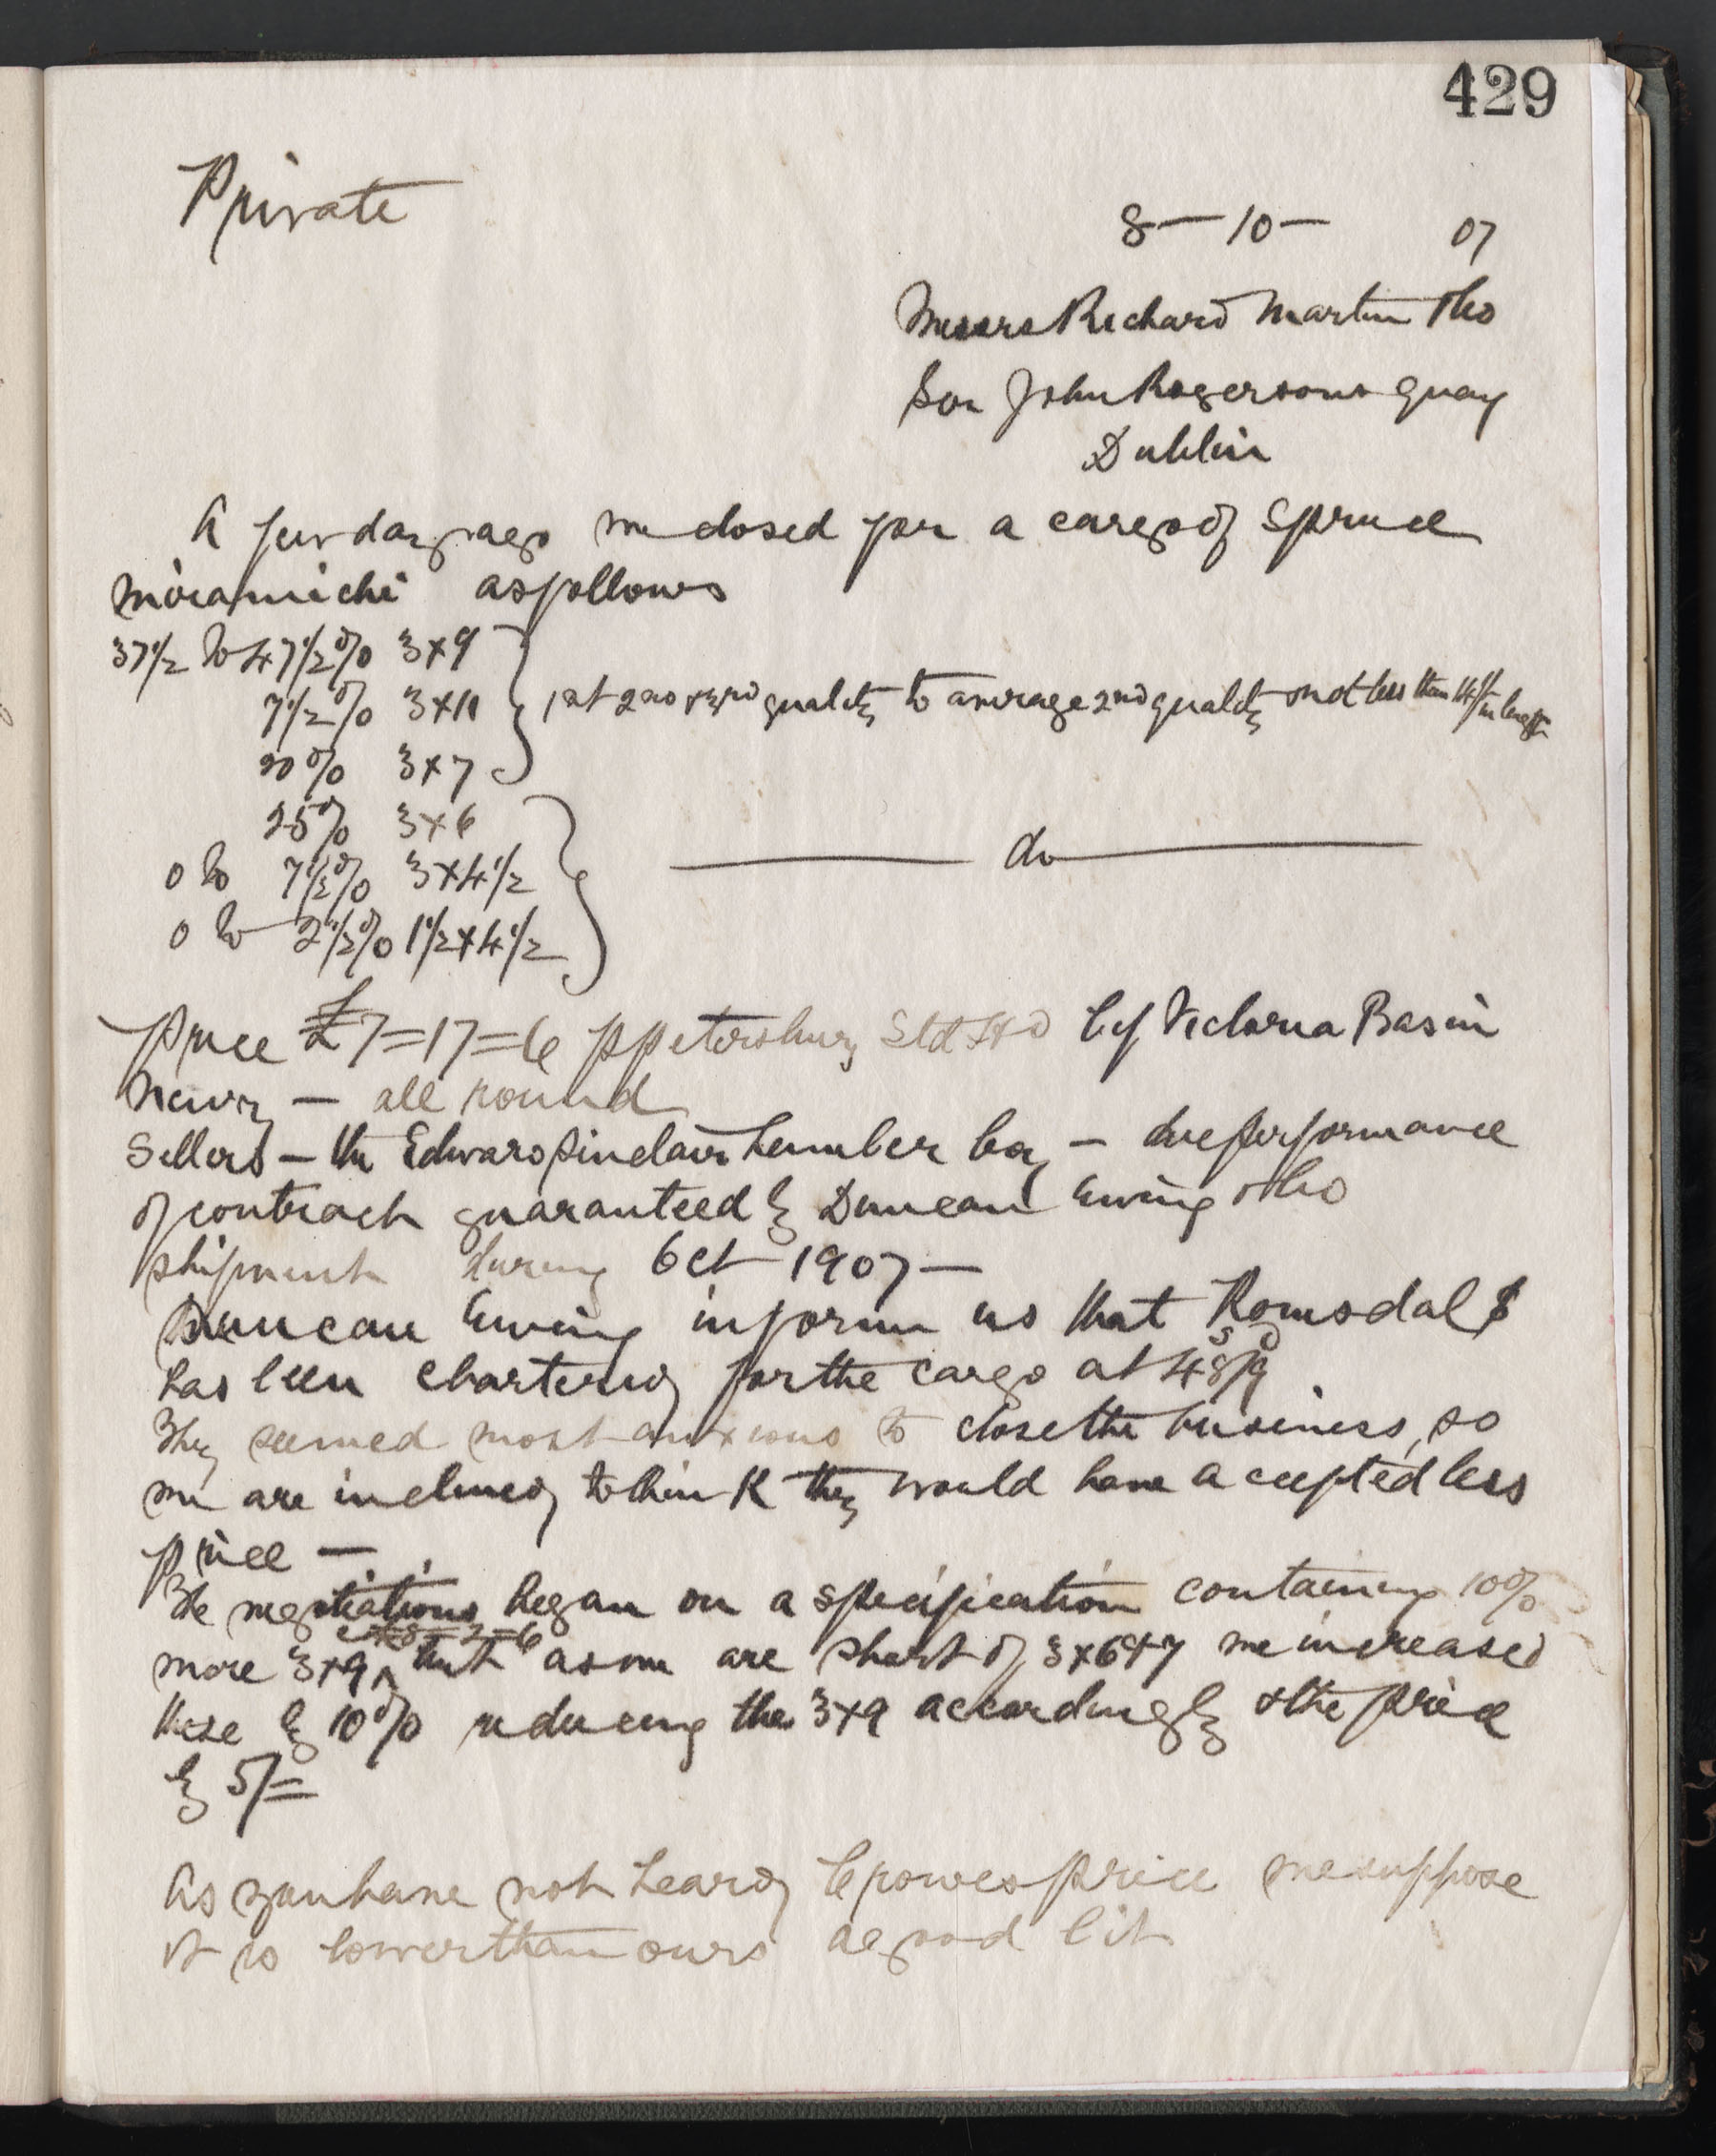 429
Private
8 — 10 — 07
Messrs Richard Martin & Co
Sir John Rogersons Quay
Dublin
A few days ago we closed for a cargo of Spruce
Miramichi as follows
37½ to 47½% 3x9
7½% 3x11 1st 2nd & 3rd quality to average 2nd quality & not less than 14ft in length
20% 3x7
25% 3x6
0 to 7½% 3x4½ — do —
0 to 2½% 1½x4½
Price £7=17=6 p Petersburg Std Hd cif Victoria Basin
Newry — all round
Sellers — the Edward Sinclair Lumber Coy — due performance
of contract guaranteed by Duncan Ewing & Co
Shipment during Oct 1907 —
Duncan Ewing inform us that Romsdal
has been chartered for the cargo at 48s/9d
They seemed most anxious to close the business, so
we are inclined to think they would have accepted less
price —
The negotiations began on a specification containing 10%
more 3x9 @ £8=2=6 but as we are short of 3x6 & 7 we increased
these by 10% reducing the 3x9 accordingly & the price
by 5/=
As you have not heard Crowes price we suppose
it is lower than ours a good bit